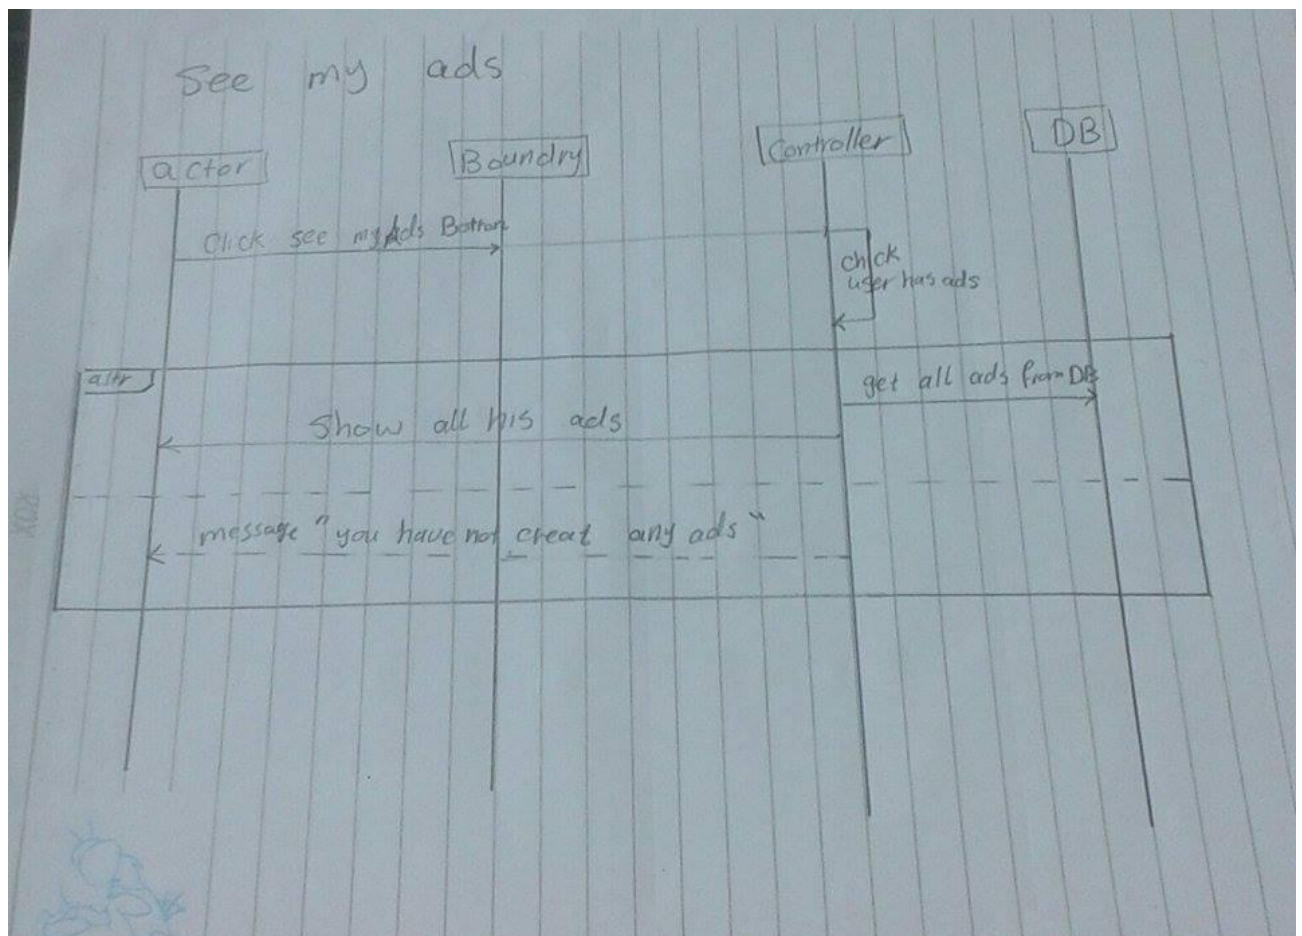 See my ads
actor
Boundry
Controller
DB
Click see my Ads Botton
chick
user has ads
altr
get all ads from DB
Show all his ads
message "you have not creat any ads"